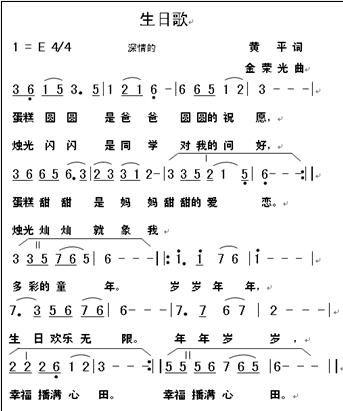 生日歌
1 = E 4/4 深情的 黄 平 词
金 荣 光 曲
3 6 1 5 3. 5 | 1 2 1 6 - | 6 6 5 1 2 | 3 - - - |
蛋糕 圆 圆 是 爸 爸 圆 圆的 祝 愿,
烛光 闪 闪 是 同 学 对 我的 问 好,
3 6 6 5 6. 3 | 2 3 3 1 2- | 3 3 5 2 1 5 | 6 - - - :||
蛋糕 甜 甜 是 妈 妈 甜 甜的 爱 恋。
烛光 灿 灿 就 象 我
3 3 5 7 6 5 | 6 - - - ||: i. i 7 6 | i - - - |
多 彩的 童 年。 岁 岁 年 年,
7. 3 5 6 7 6 5 | 6 - - - | 7. 7 6 7 | 2 - - - |
生 日 欢乐 无 限。 年 年 岁 岁 ,
2 2 2 6 1 2 | 3 - - - :|| 5 5 5 6 7 6 5 | 6 - - - ||
幸福 播满 心 田。 幸福 播满 心 田。